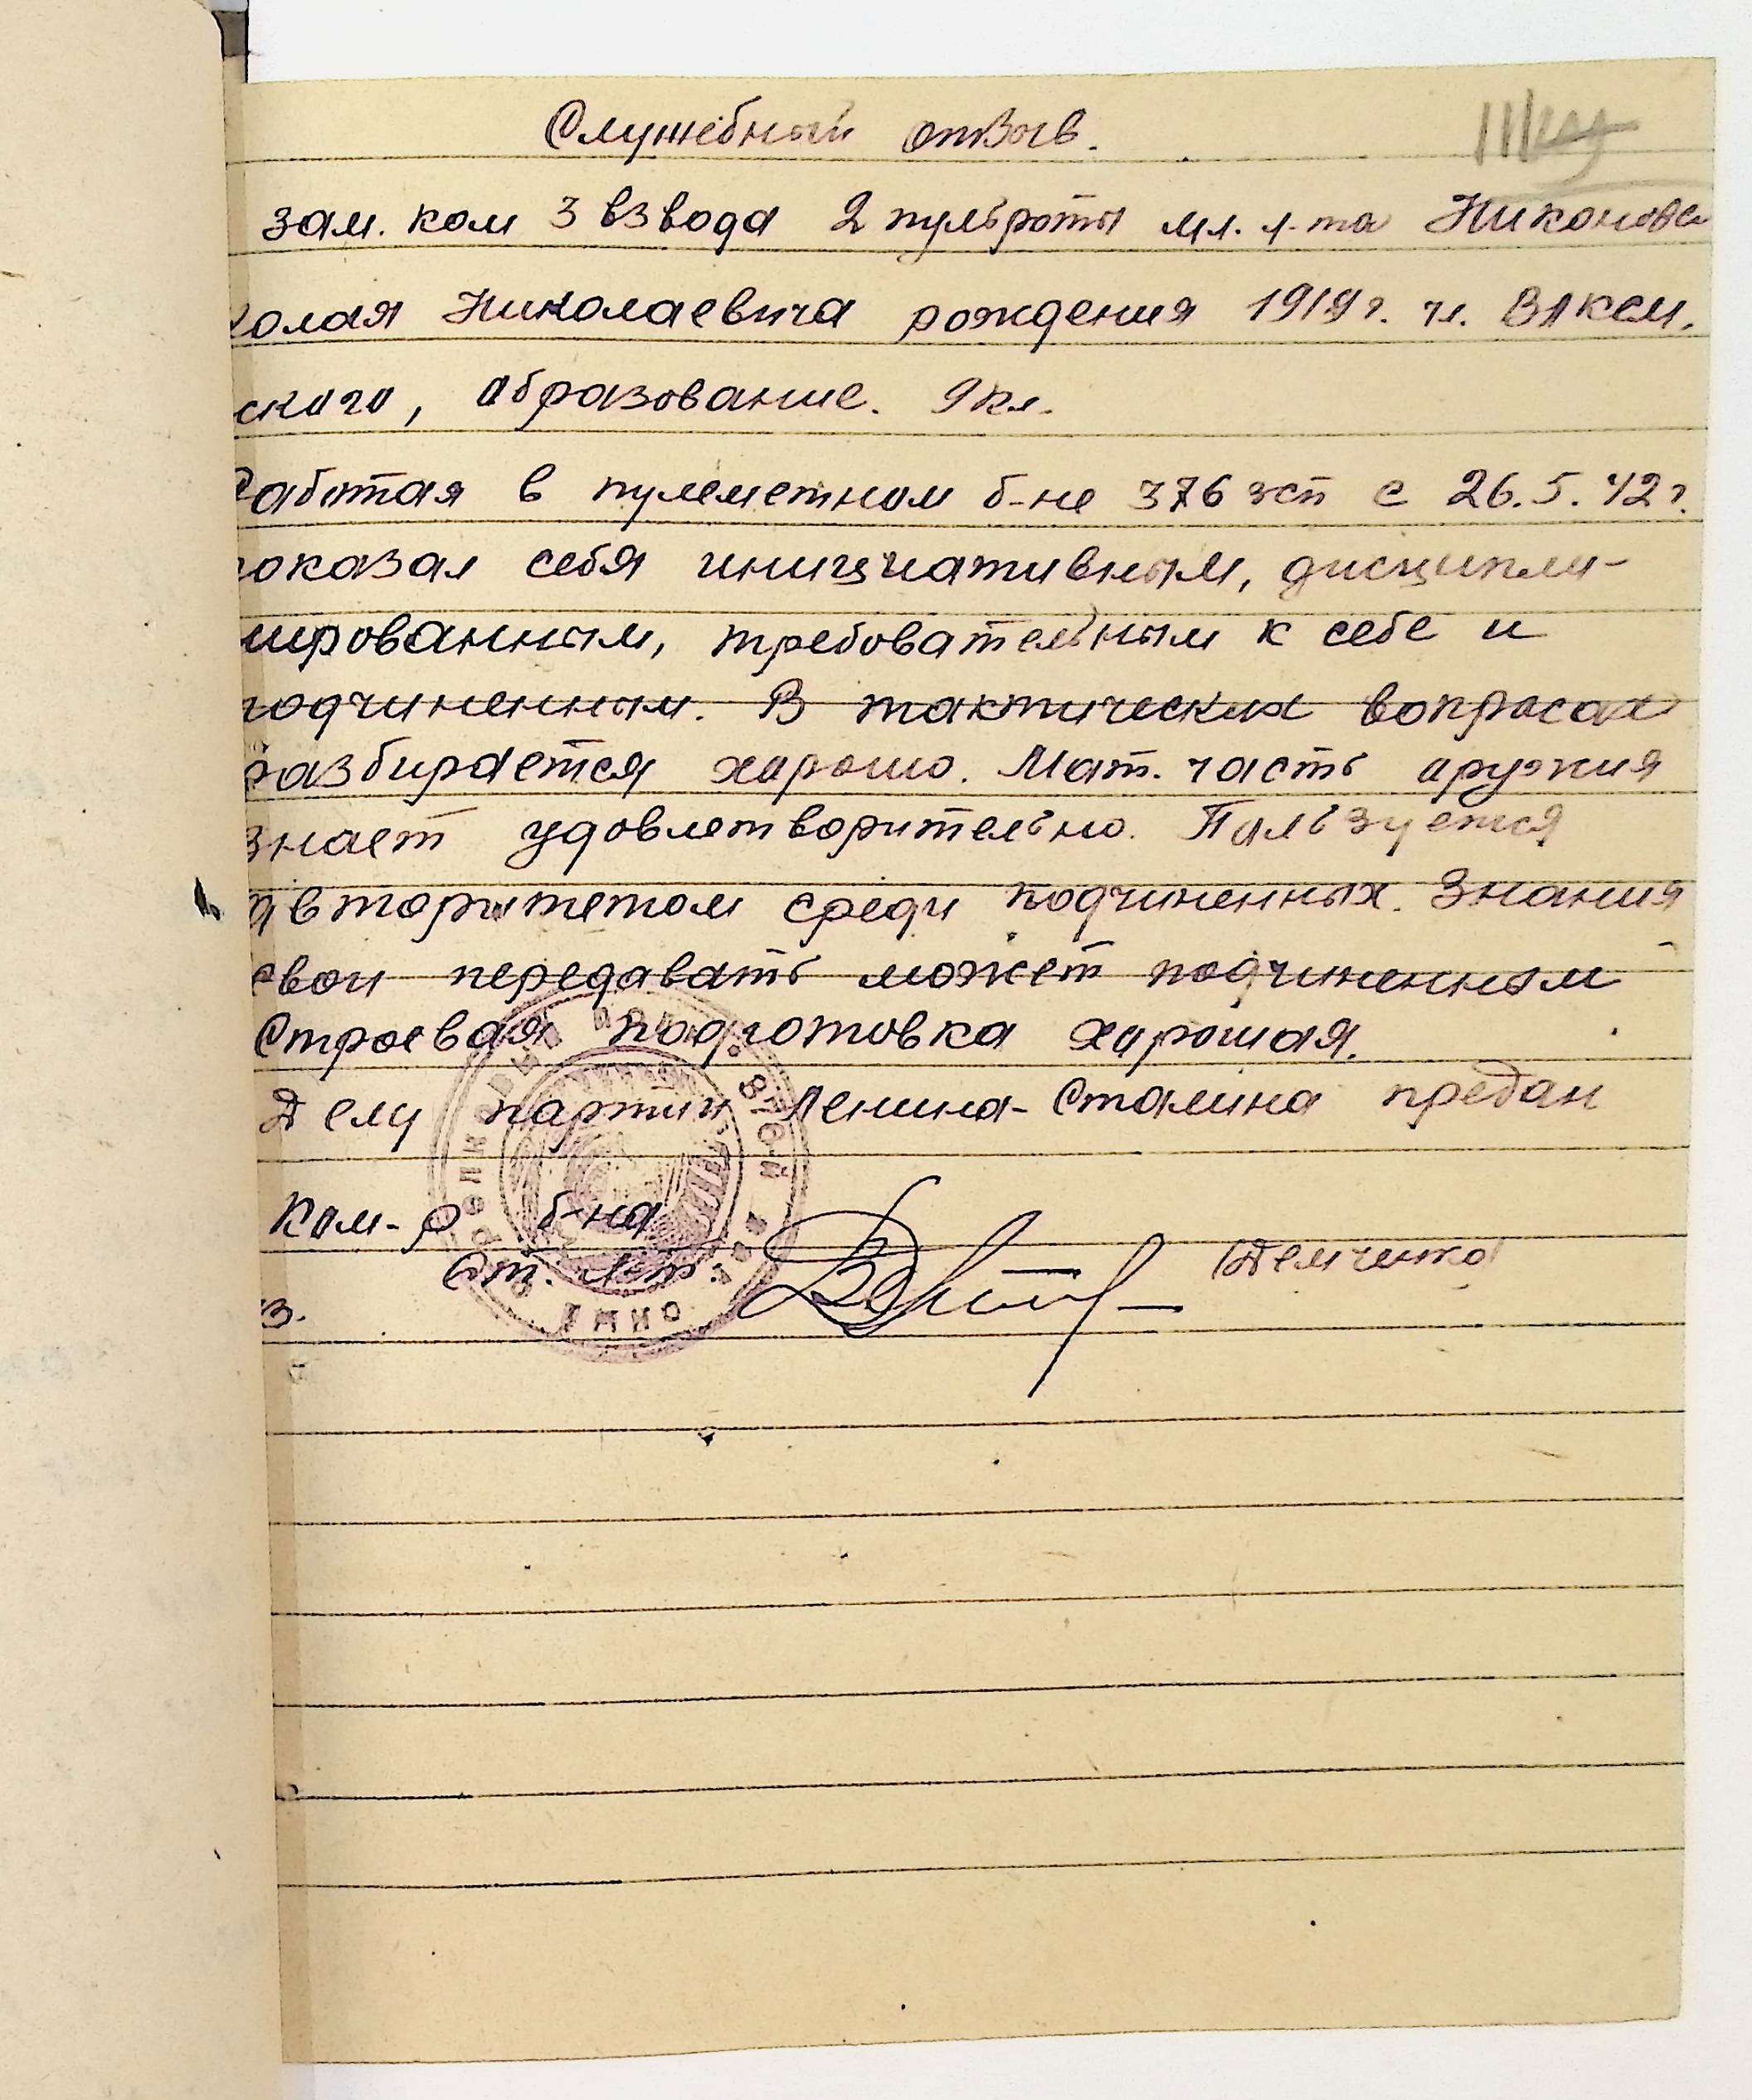 Служебный отзыв.
зам. ком 3 взвода 2 пульроты мл. л-та Никонова
колая Николаевича рождения 1919 г. чл. ВЛКСМ.
ского, образование. 9 кл.
Работая в пулеметном б-не 376 зсп с 26.5.42 г.
показал себя инициативным, дисципли-
нированным, требовательным к себе и
подчиненным. В тактических вопросах
разбирается хорошо. Мат. часть оружия
знает удовлетворительно. Пользуется
авторитетом среди подчиненных. Знания
свои передавать может подчиненным
Строевая подготовка хорошая.
Делу партии Ленина-Сталина предан
Ком-р б-на
Ст. л-т. (Демченко)